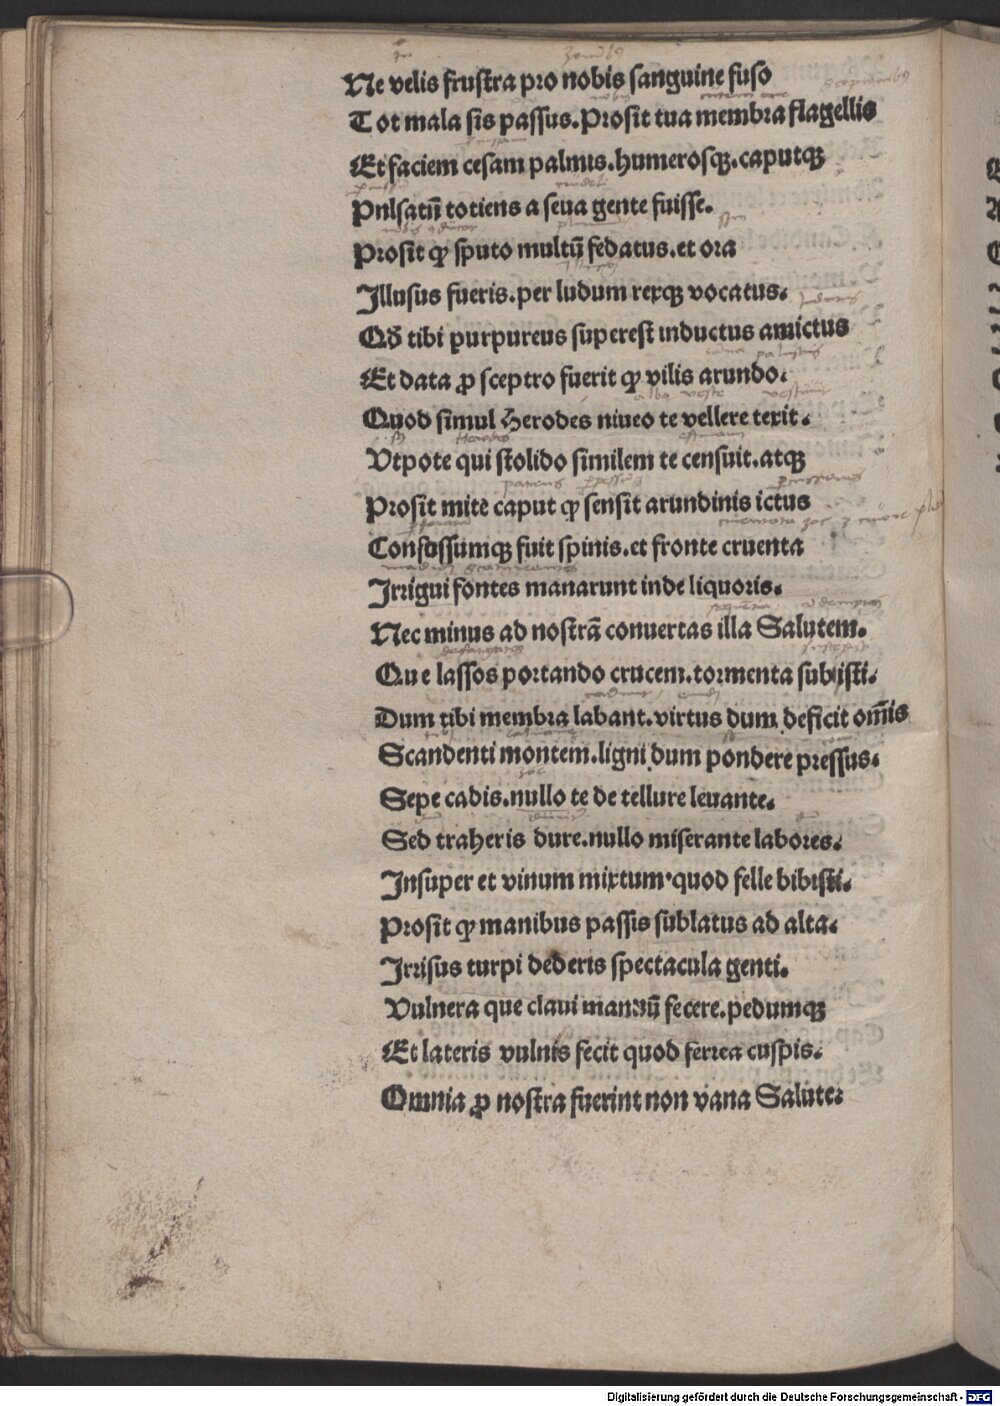 Ne velis frustra pro nobis sanguine fuso
Tot mala sis passus. Prosit tua membra flagellis
Et faciem cesam palmis. humerosqꝫ. caputqꝫ
Pnlsatū totiens a seua gente fuisse.
Prosit ꝙ sputo multū fedatus. et ora
Illusus fueris. per ludum rexqꝫ vocatus.
Qđ tibi purpureus superest inductus amictus
Et data ꝓ sceptro fuerit ꝙ vilis arundo.
Quod simul Herodes niueo te vellere texit.
Vtpote qui stolido similem te censuit. atqꝫ
Prosit mite caput ꝙ sensit arundinis ictus
Confossumqꝫ fuit spinis. et fronte cruenta
Irrigui fontes manarunt inde liquoris.
Nec minus ad nostrā conuertas illa Salutem.
Que lassos portando crucem. tormenta subijsti.
Dum tibi membra labant. virtus dum deficit om̄is
Scandenti montem. ligni dum pondere pressus.
Sepe cadis. nullo te de tellure leuante.
Sed traheris dure. nullo miserante labores.
Insuper et vinum mixtum. quod felle bibisti.
Prosit ꝙ manibus passis sublatus ad alta.
Irrisus turpi dederis spectacula genti.
Vulnera que claui manuū fecere. pedumqꝫ
Et lateris vulnis fecit quod ferrea cuspis.
Omnia ꝓ nostra fuerint non vana Salute.
Digitalisierung gefördert durch die Deutsche Forschungsgemeinschaft - DFG